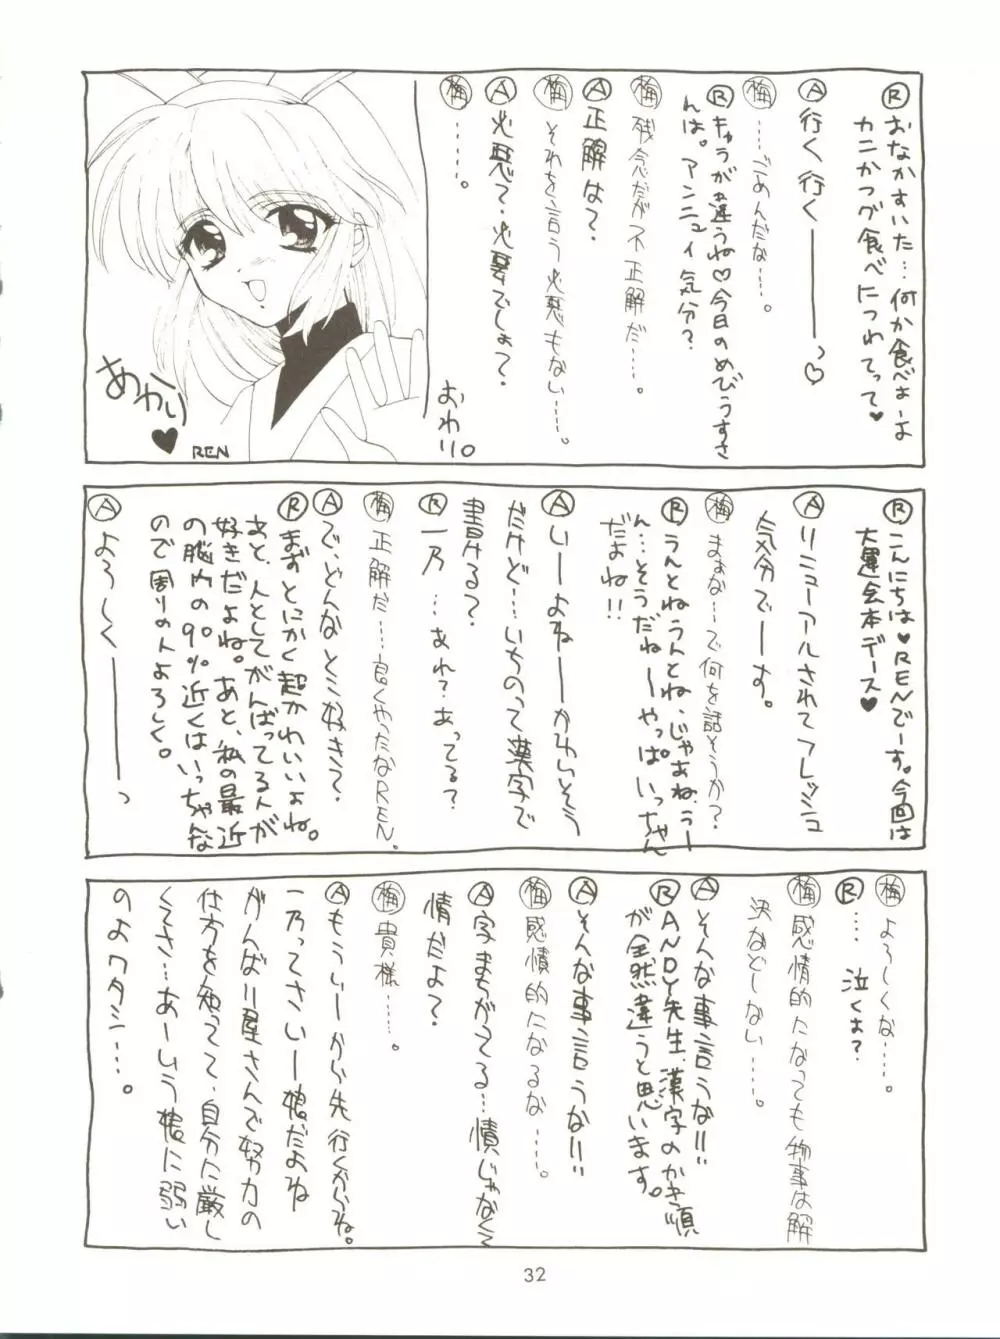 Ⓡおなかすいた…何か食べよーよ
カニかつグ食べにつれてって♥
Ⓐ行く行く————っ♡
㊢
梅……ごめんだな…。
Ⓡキャラが違うね♡今日のめびうすさ
んは。アンニュイ気分?
梅 残念だが不正解だ…。
Ⓐ正解は?
梅 それを言う必要もない…。
Ⓐ必要て・必要でしょ?
梅……。
おわり。
あかり♥
REN
Ⓡこんにちは♥RENでーす。今回は
大運会本デース♥
Ⓐリニューアルされてフレッシュ
気分でーす。
梅 まぁな…で何を話そうか?
Ⓡうんとねうんとね、じゃあね、うー
ん…そうだねーやっぱいっちゃん
だよね!!
Ⓐいーよねーかわいそう
だけど…いちのって漢字で
書ける?
Ⓡ一乃…あれ?あってる?
梅 正解だ…良くやったなREN.
Ⓐで、どんなとこ好き?
Ⓡまずとにかく超かわいいよね。
あと、人としてがんばってる人が
好きだよね。あと、私の最近
の脳内の90%近くはいっちゃんな
ので周りの人よろしく。
Ⓐよろしく———っ
梅 よろしくな…。
Ⓡ…泣くよ?
梅 感情的になっても物事は解
決などしない…。
Ⓐそんな事言うな!!
ⓇANDY先生、漢字のかき順
が全然違うと思います。
Ⓐそんな事言うな!!
梅 感債的になるな…。
Ⓐ字まちがてる…債じゃなくて
情だよ?
梅 貴様……。
Ⓐもういーから先行くからね。
一乃ってさいー娘だよね
がんばり屋さんで努力の
仕方を知ってて、自分に厳し
くてさ…あーいう娘に弱い
のよワタシ…。
32